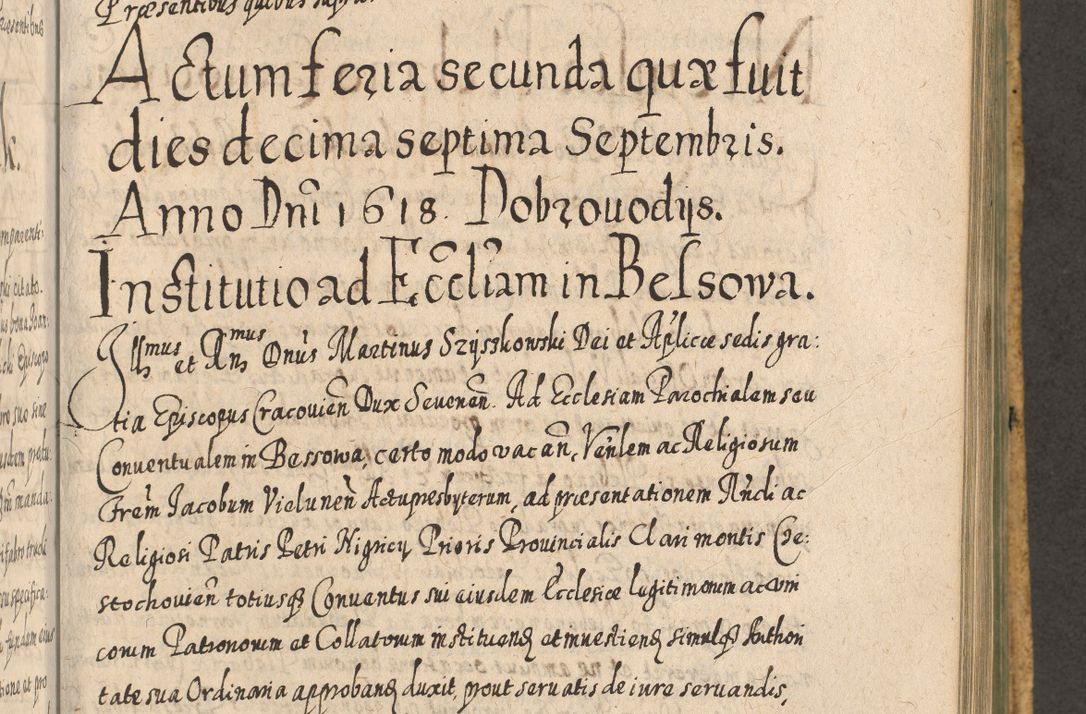 Præsentibus quibus supra.
Actum feria secunda quæ fuit
dies decima septima Septembris.
Anno Dnī 1618. Dobrouodijs.
Institutio ad Eccl̄iam in Belsowa.
Jllmus et Rn̄mus Dnūs Martinus Szyszkowski Dei et Ap̄licæ sedis gra:
tia Episcopus Cracouien̄ Dux Seueren̄. Ad Ecclesiam Parochialem seu
Conuentualem in Bessowa, certo modo vacan̄, Ven̄lem ac Religiosum
Frēm Jacobum Vielunen̄ Actu presbyterum, ad præsentationem Rn̄di ac
Religiosi Patris Petri Nigricij Prioris Prouincialis Clari montis Cze:
stochouien̄ totiusq3 Conuentus sui eiusdem Ecclesiæ legitimorum ac veri
eorum Patronorum et Collatorum instituend̄ et inuestiend̄ simulq3 Authori
tate sua Ordinaria approband̄ duxit, prout seruatis de iure seruandis,